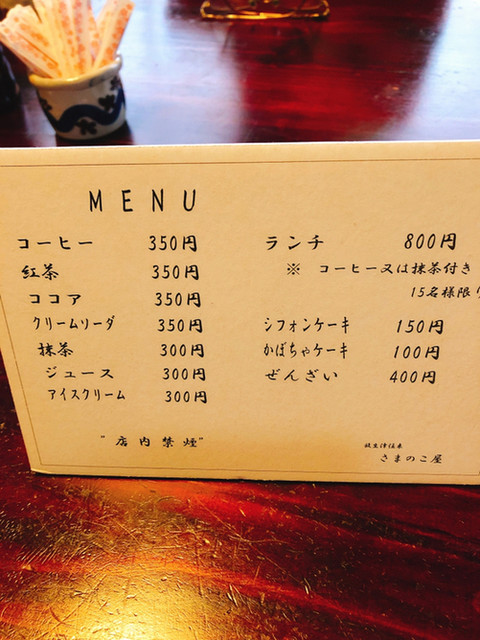 MENU
コーヒー 350円
紅茶 350円
ココア 350円
クリームソーダ 350円
抹茶 300円
ジュース 300円
アイスクリーム 300円
"店内禁煙"
ランチ 800円
※ コーヒー又は抹茶付き
15名様限り
シフォンケーキ 150円
かぼちゃケーキ 100円
ぜんざい 400円
さまのこ屋